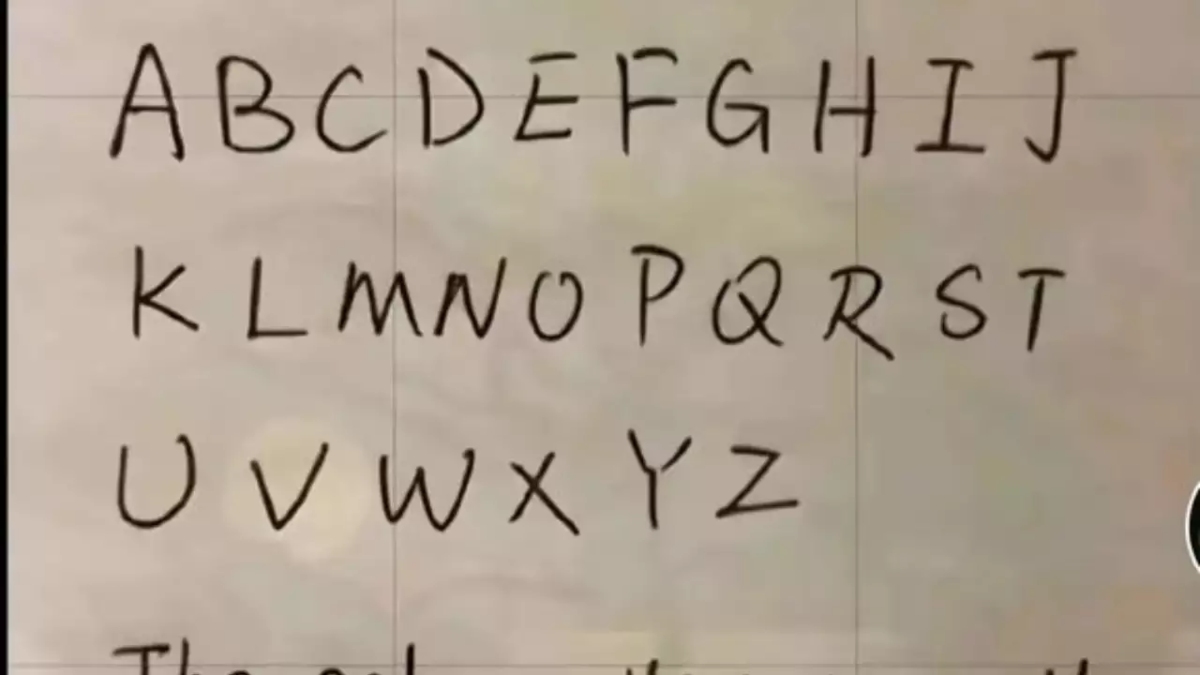 A B C D E F G H I J
K L M N O P Q R S T
U V W X Y Z
The